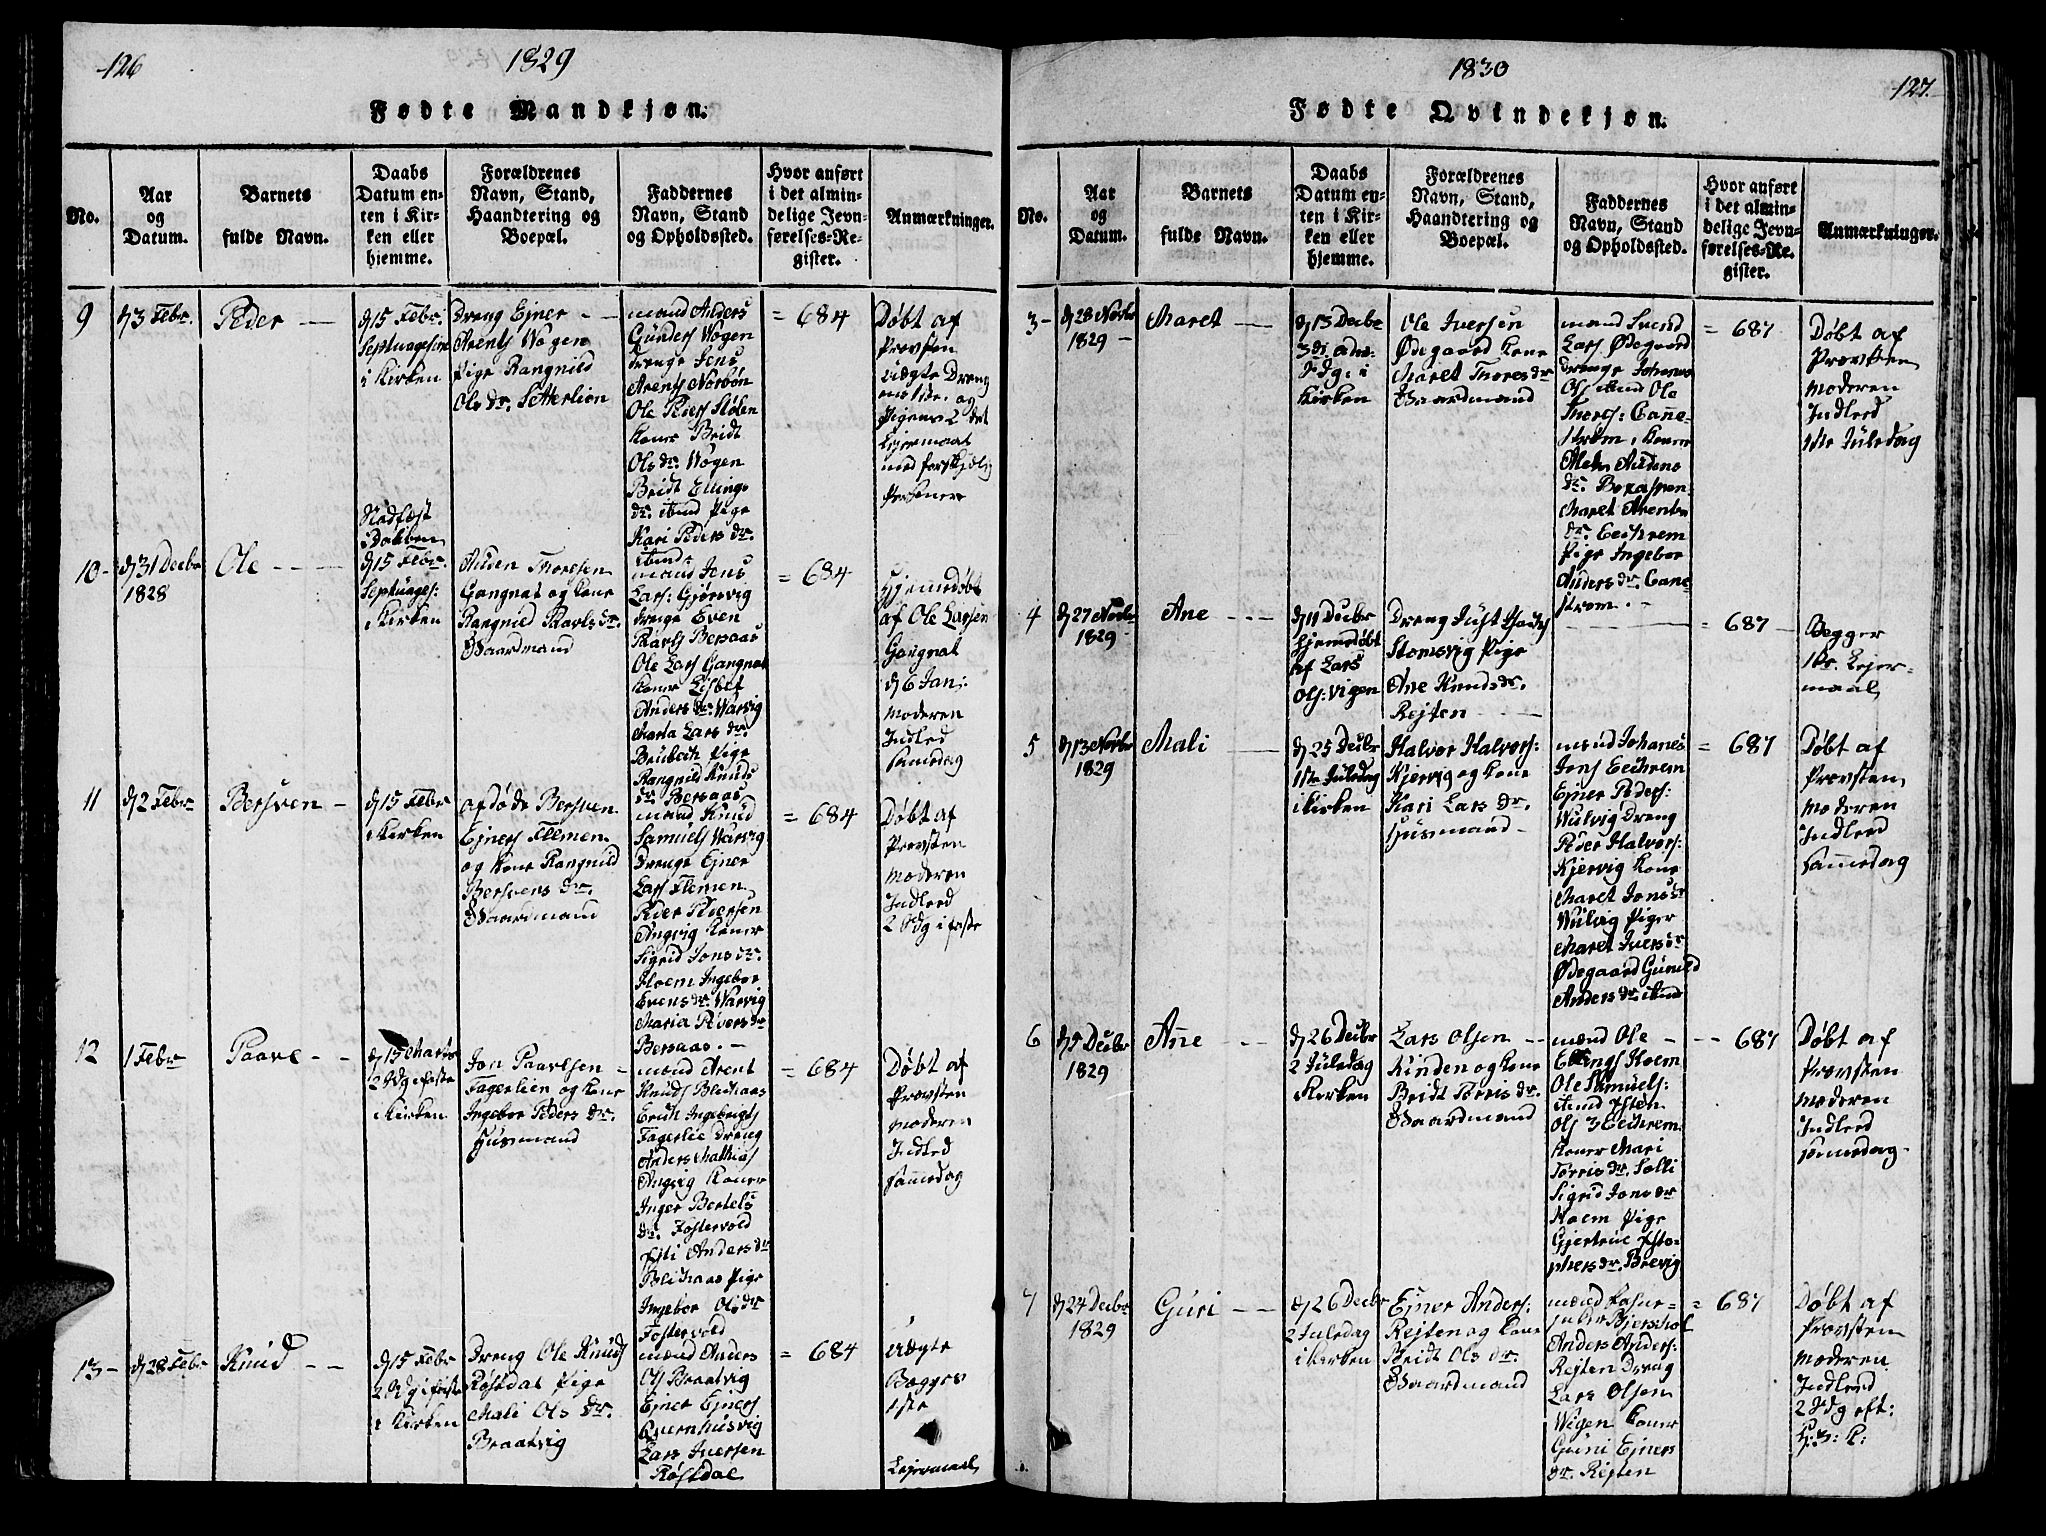 126
1829
Fødte Mandkjøn.
No.
Aar
og
Datum.
Barnets
fulde Navn.
Daabs
Datum en-
ten i Kir-
ken eller
hjemme.
Forældrenes
Navn, Stand,
Haandtering og
Boepæl.
Faddernes
Navn, Stand
og Opholdssted.
Hvor anført
i det almin-
delige Jevn-
førelses-Re-
gister.
Anmærkninger.
9
d 3 Febr.
Peder
d 15 Febr.
Septuagesim
i Kirken
Dreng Ejner
Arents Wogen
Pige Rangnild
Ols dr. Setterlien
mand Anders
Gunders Wogen
Drenge Jens
Arents Norbøn
Ole Peders Stolen
Koner Bridt
Ols dr. Wogen
Bridt Ellings
dr. ibid Pige
Kari Peders dr.
ibid
= 684
Døbt af
Provsten
uægte Dreng
og
Pigens 2det
Lejermaal
med forskjelig
Personer
10
d 31 Decbr
1828
Ole
d 15 Febr.
Septuages:
i Kirken
Auden Thoresen
Gangnat og Kone
Rangnid Paavls dr.
Gaardmand
mand Jens
Lars: Gjørvig
Drenge Even
Paavls Bersaas
Ole Lars Gangnat
Koner Lisbet
Anders dr. Warvig
Marta Lars dr.
Pige
Rangnild Knuds
dr. Bersaas
= 684
Hjemmedøbt
af Ole Larsen
Gangnat
d 6 Jan:
Moderen
Indled
samedag
11
d 2 Febr
Bersven
d 15 Febr
i Kirken
afdøde Bersven
Ejners Flemen
og Kone Rangnild
Bersvens dr.
Gaardmand
mænd Knud
Samuels Warvig
Drenge Ejner
Lars Flemen
Peder Pedersen
Angvig Koner
Sigrid Jons dr.
Hoem Ingebor
Evens dr. Warvig
Maria Peders dr
Bersaas.
= 684
Døbt af
Provsten
Moderen
Indled
2 Sdg i faste
12
1 Febr
Paavl
d 15 Marts
2 Sdg i faste
i Kirken
Jon Paavlsen
Fagerlien og Kone
Ingebor Peders dr.
Husmand
mænd Arent
Knuds Blikaas
Erich Ingebrigts
Fagerlie Dreng
Anders Mathias
Angvig Koner
Inger Bertels
dr. Fostervold
Anders dr
Blikaas Pige
Ingebor Ols dr
Fostervold
= 684
Døbt af
Provsten
Moderen
Indled
samedag
13
d 28 Febr
Knud
d 15 Febr
2 Sdg i faste
i Kirken
Dreng Ole Knuds
Røstdal Pige
Mali Ols dr.
Braatvig
mænd Anders
Ols Braatvig
Ejner Ejners
Qvernhusvig
Lars Iversen
Røstdal
= 684
uægte
Begges
1ste
Lejermaal
1830
127.
Fødte Qvindekjøn.
No.
Aar
og
Datum.
Barnets
fulde Navn.
Daabs
Datum en-
ten i Kir-
ken eller
hjemme.
Forældrenes
Navn, Stand,
Haandtering og
Boepæl.
Faddernes
Navn, Stand
og Opholdssted.
Hvor anført
i det almin-
delige Jevn-
førelses-Re-
gister.
Anmærkninger.
3
d 28 Novbr
1829
Maret
d 13 Decbr
3die Adv:
Sdg: i
Kirken
Ole Iversen
Ødegaard Kone
Maret Thores dr
Gaardmand
mand Svend
Lars Ødegaard
Drenge Johannes
Ols ibid Ole
Thores: Cane-
strøm, Koner
Audens
dr.
Maret Arents
dr. Eeikrem
Pige Ingebor
Anders dr. Cane-
strøm.
= 687
Døbt af
Provsten
Moderen
Indled
1ste Juledag
4
d 27 Novbr
1829
Ane
d 11 Decbr
hjemedøbt
af Lars
Ols: Vigen
Dreng Just
Stomsvig Pige
Ane Knuds dr.
Rejten
= 687
Begges
1ste Lejer-
maal
5
d 13 Novbr
1829
Mali
d 25 Decbr
1ste Juledag
i Kirken
Halvor Halvors:
Kjervig og Kone
Kari Lars dr.
Husmand
mænd Johanes
Jons Eeikrem
Ejner Peders:
Wulvig Dreng
Peder Halvors:
Kjervig Kone
Maret Jons dr
Wulvig Piger
Maret Ivers dr
Ødegaard Gunild
Anders dr. ibid
= 687
Døbt af
Provsten
Moderen
Indled
samedag
6
d 5 Decbr
1829
Ane
d 26 Decbr
2 Juledag
i Kirken
Lars Olsen
Rinden og Kone
Bridt Torris dr.
Gaardmand
mænd Ole
Ellings Hoem
Ole Samuels:
ibid
Ols Eeikrem
Koner Mari
Torris dr. Solli
Sigrid Jons dr
Hoem Pige
Gjertrue
dr. Brevig
687
Døbt af
Provsten
Moderen
Indled
samedag
7
d 24 Decbr
1829
Guri
d 26 Decbr
2 Juledag
i Kirken
Ejner Anders:
Rejten og Kone
Bridt Ols dr.
Gaardmand
mænd
Anders Anders:
Rejten Dreng
Lars Olsen
Wigen Koner
Guni Ejners
dr. Rejten
= 687
Døbt af
Provsten
Moderen
Indled
2 Sdg eft:
H: 3: K: